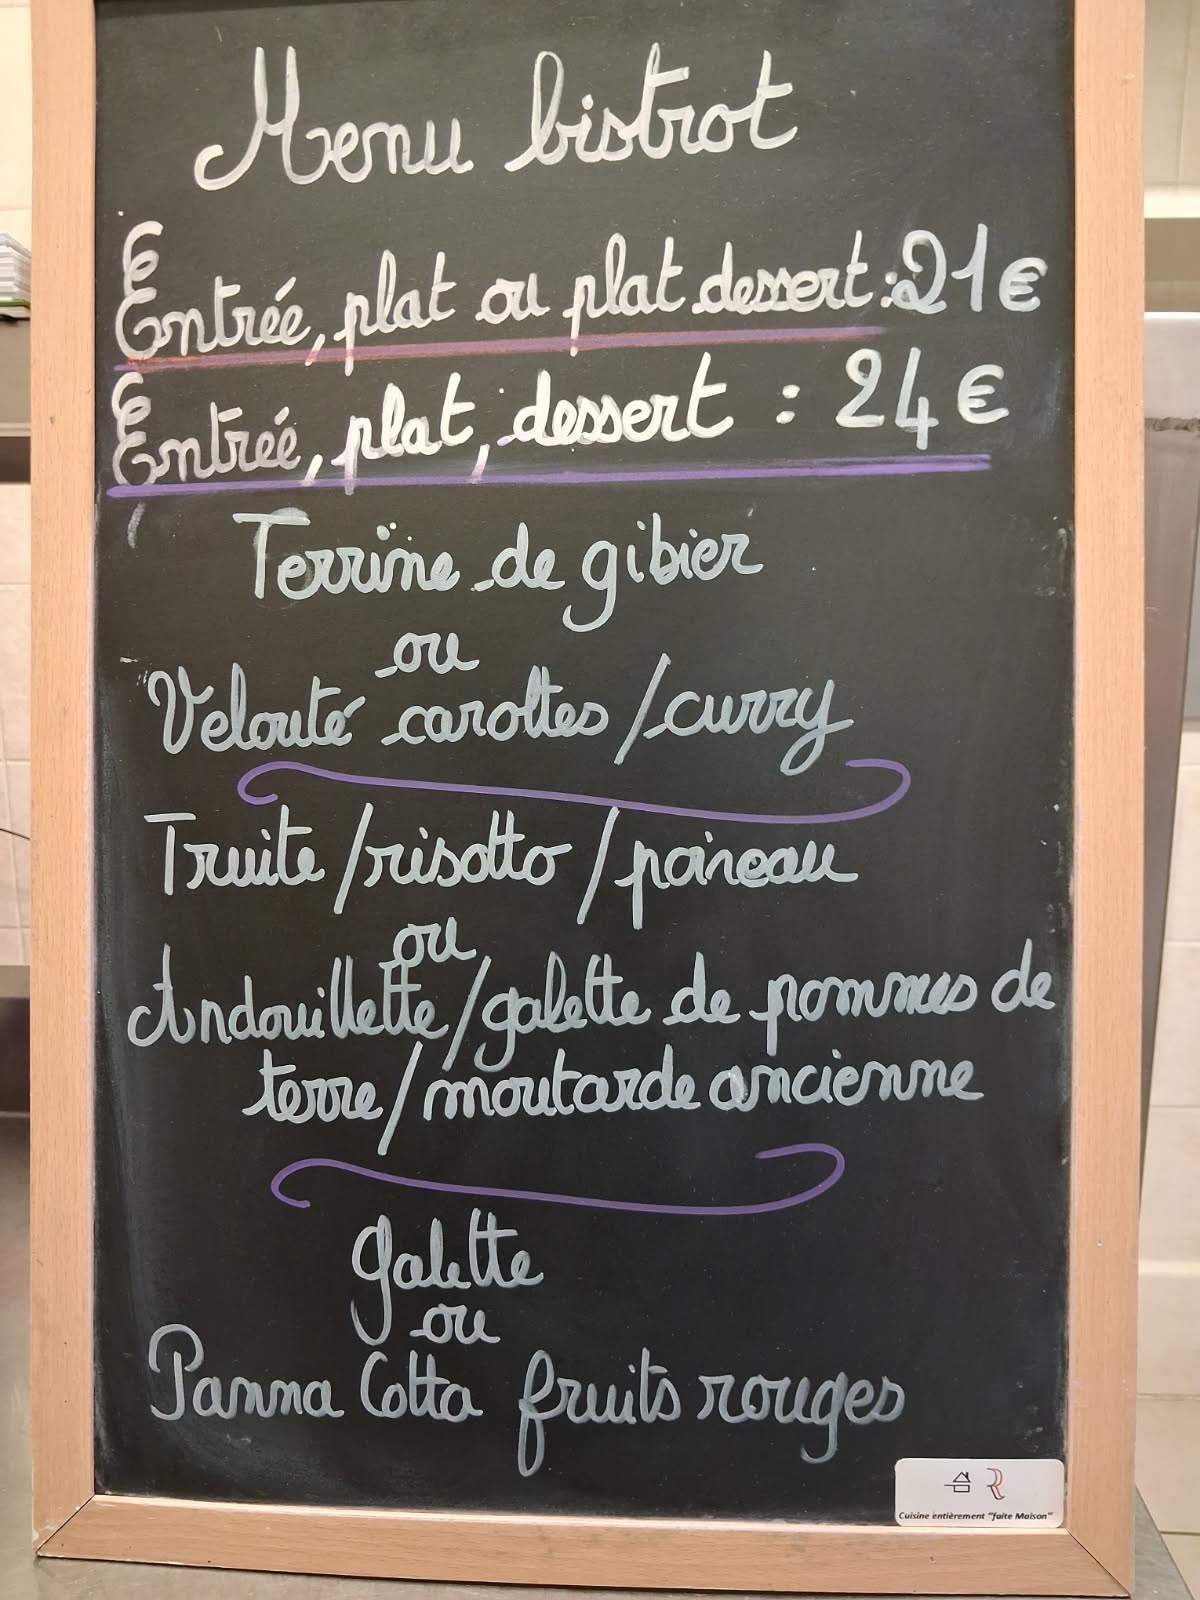 Menu bistrot
Entrée, plat ou plat dessert : 21€
Entrée, plat, dessert : 24€
Terrine de gibier
ou
Velouté carottes / curry
Truite / risotto / poireau
ou
Andouillette / galette de pommes de
terre / moutarde ancienne
galette
ou
Panna Cotta fruits rouges
Cuisine entièrement "faite Maison"